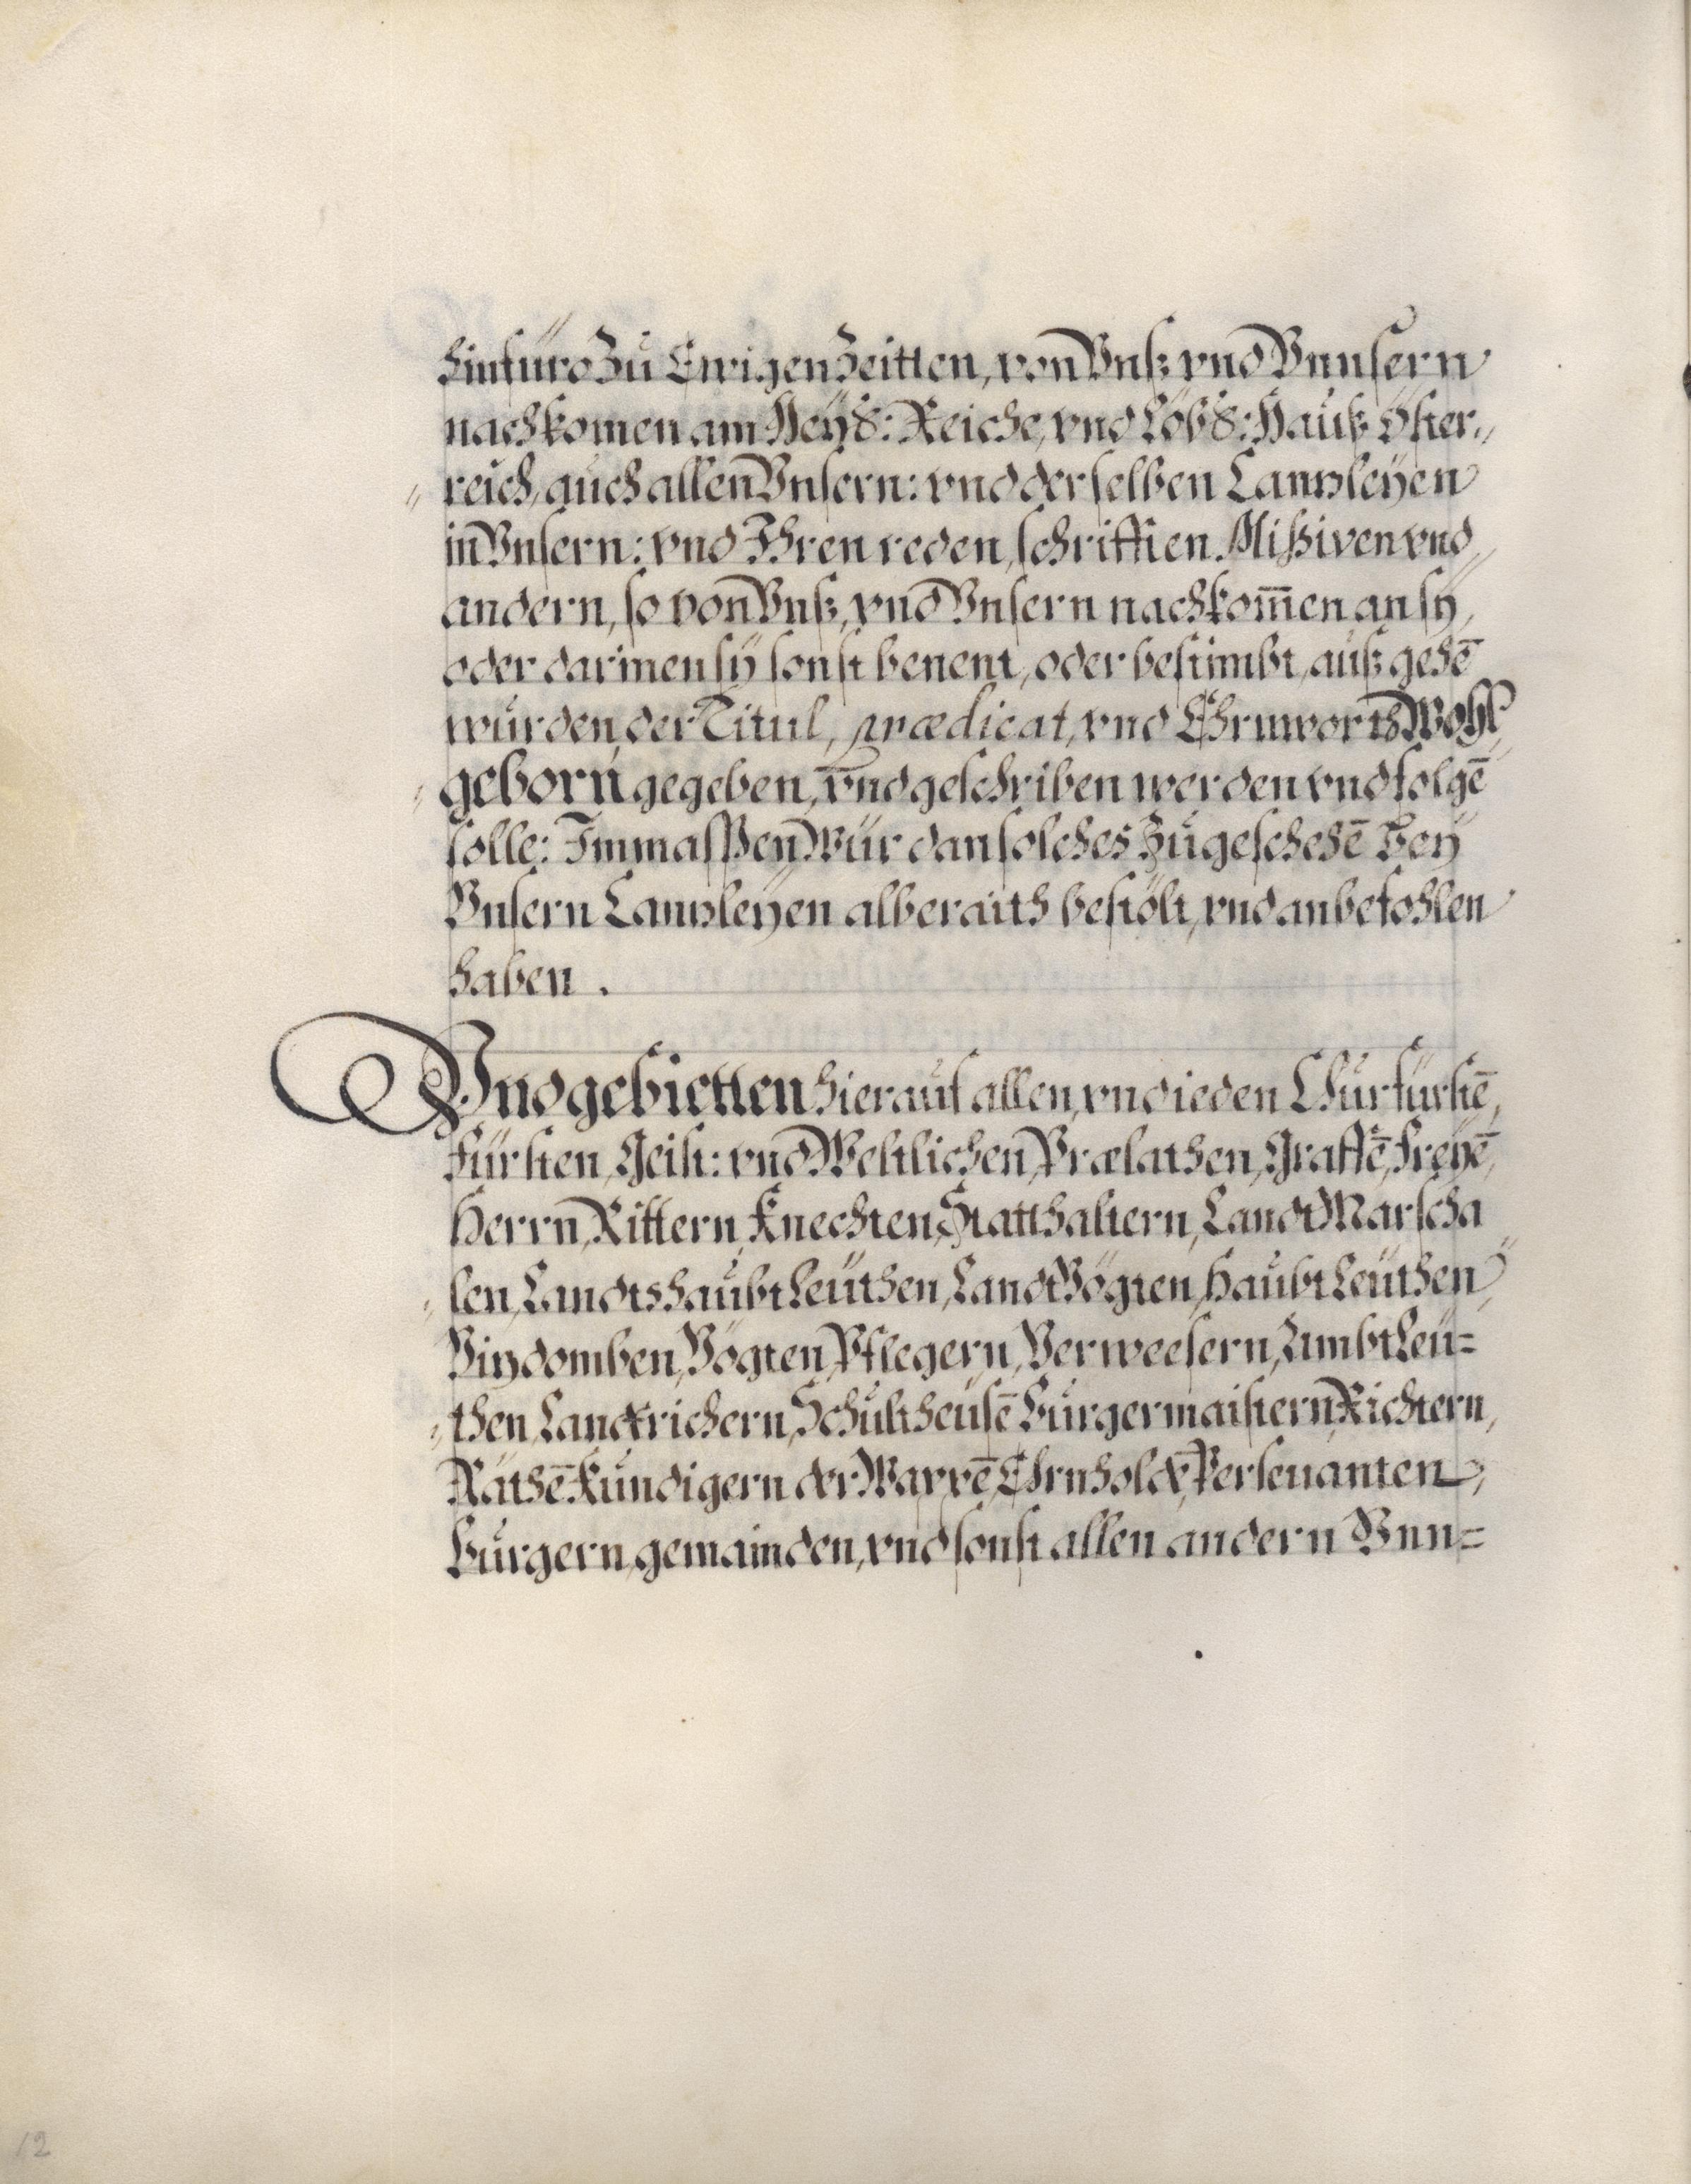 hinfüro Zu Ewigen Zeitten, von Vnß vnd Vnnsern
nachkomen am Heyl: Reiche, vnd Löbl: Hauß Öster„
„reich, auch allen Vnsern: vnd derselben Canzleyen
in Vnsern: vnd Ihren reden, schrifften Missiven vnd
andern, so von Vnß, vnd Vnsern nachkom̄en an sy,
oder darinen sy sonst benent, oder bestimbt, auß gehē
wurden, der Titul, prædicat, vnd Ehrnworth Wohl„
„geborn gegeben, vnd geschriben werden vnd folgē
solle: Immassen Wür dan solches Zu geschehē bey
Vnsern Canzleyen alberaith bestölt, vnd anbefohlen
haben.
Vnd gebietten hierauf allen, vnd ieden Churfürstē,
Fürsten, Geist: vnd Weltlichen, Prælathen, Graffē, Freyē,
Herrn, Rittern, Knechten, Statthaltern, Land Marscha„
„len, Landtshaubt Leuthen, Landt Vögten, Haubt Leuthen,
Vizdomben, Vögten, Pflegern, Verweesern, Ambt Leu=
„then, Landrichern, Schultheusē Burgermaistern, Richtern,
Räthē Kündigern der Wappē, Ehrnholdē, Persevanten,
Burgern, gemainden, vnd sonst allen andern Vnn=
12